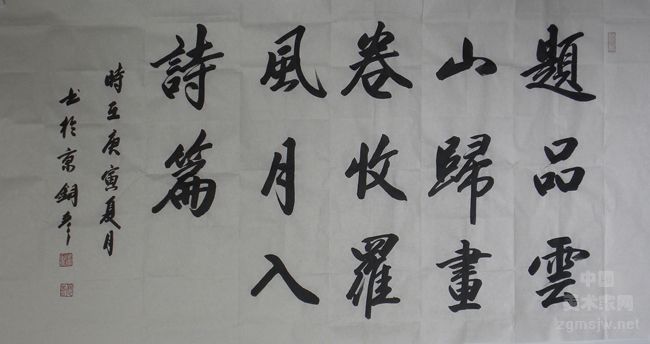 題品雲
山歸畫
卷收羅
風月入
詩篇
時在庚寅夏月
書於京
中國
美术家网
zgmsjw.net